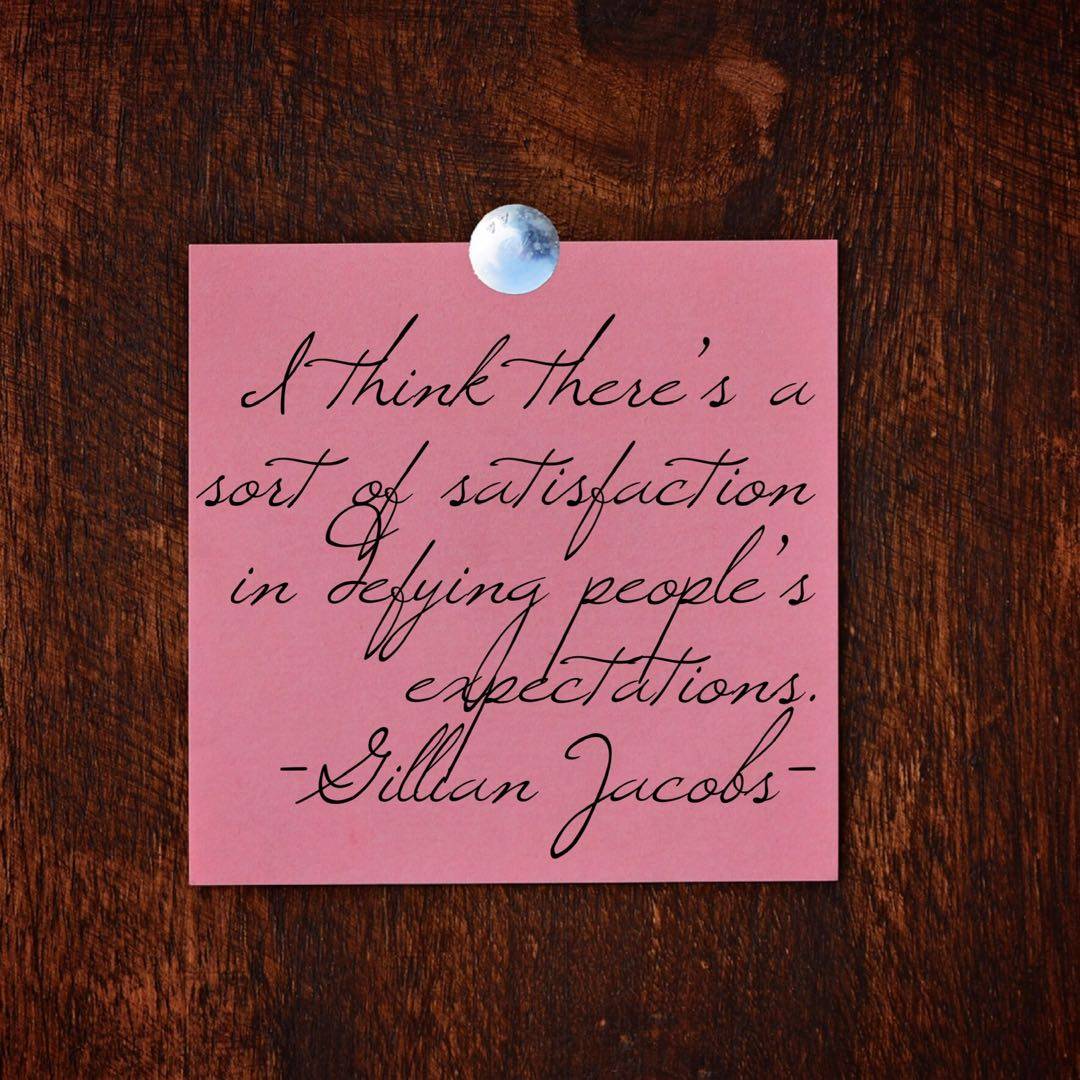 I think there's a
sort of satisfaction
in defying people's
expectations.
-Gillian Jacobs-